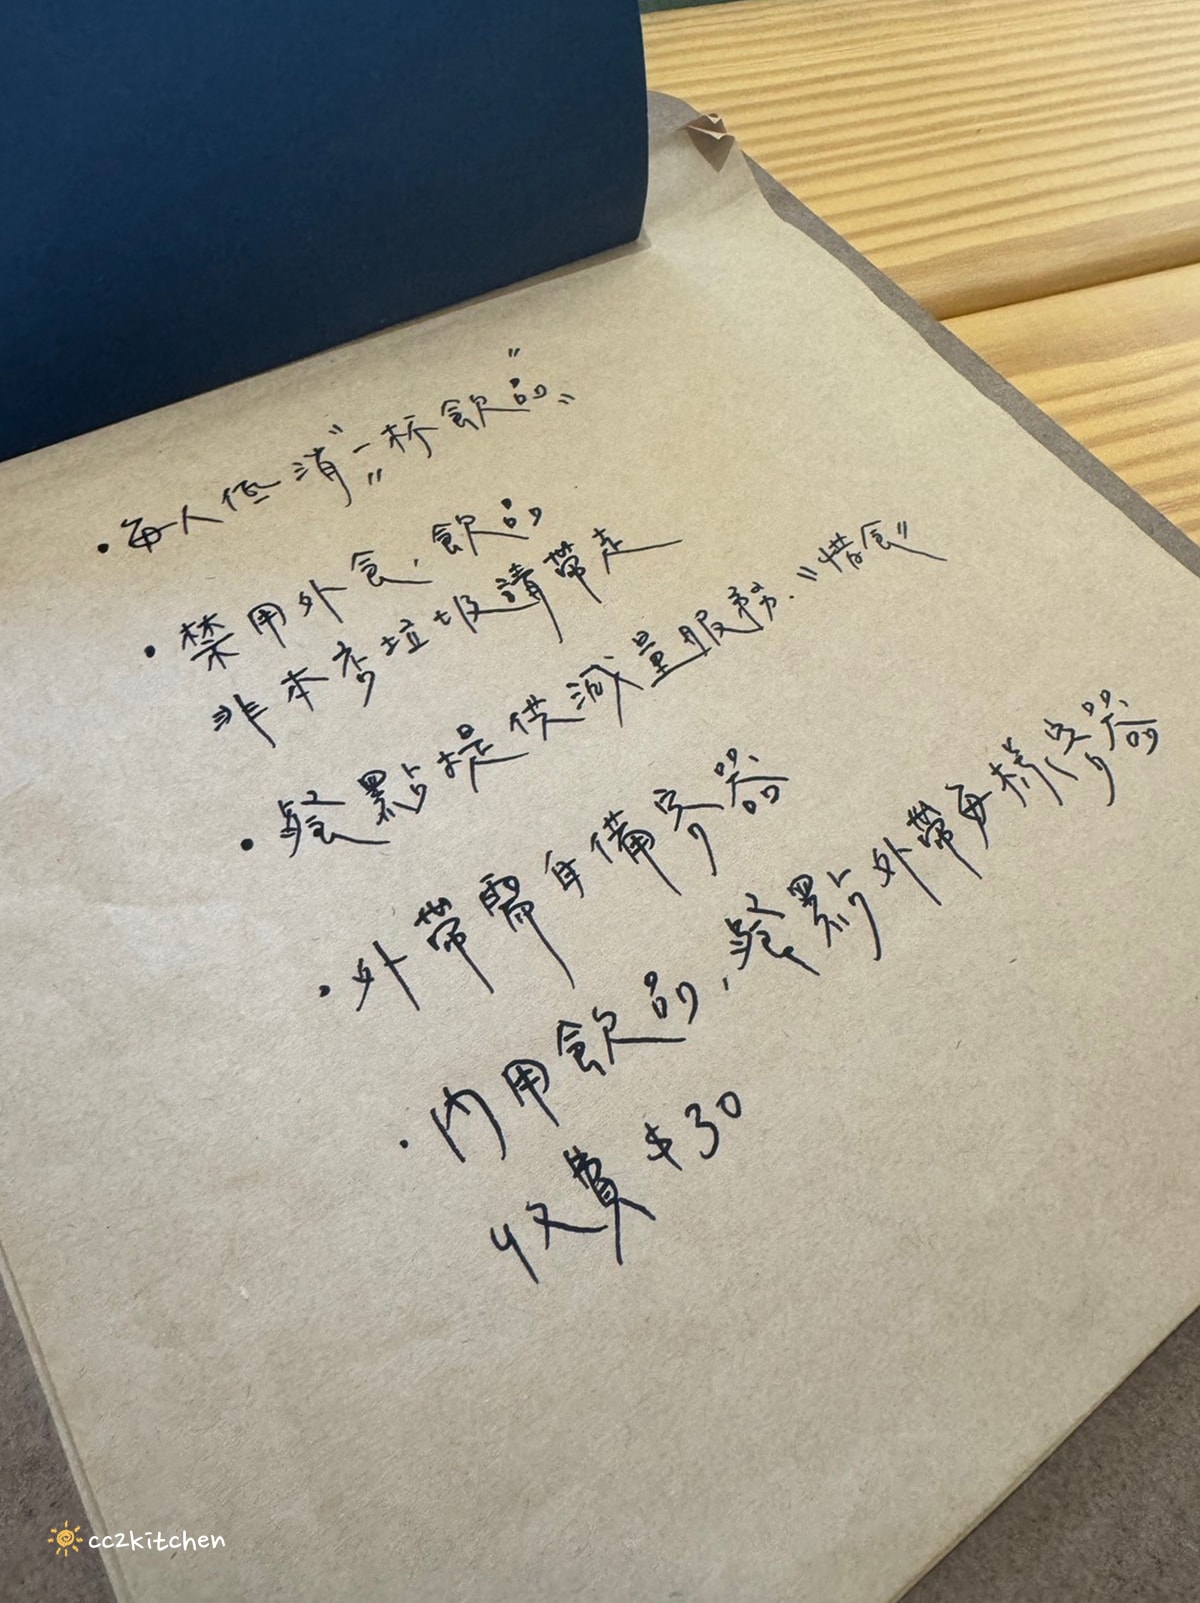 ・每人低消"一杯飲品"
・禁用外食、飲品
非本店垃圾請帶走
・餐點提供減量服務、"惜食"
・外帶需自備容器
・內用飲品、餐點外帶每樣容器
收費$30
cc2kitchen